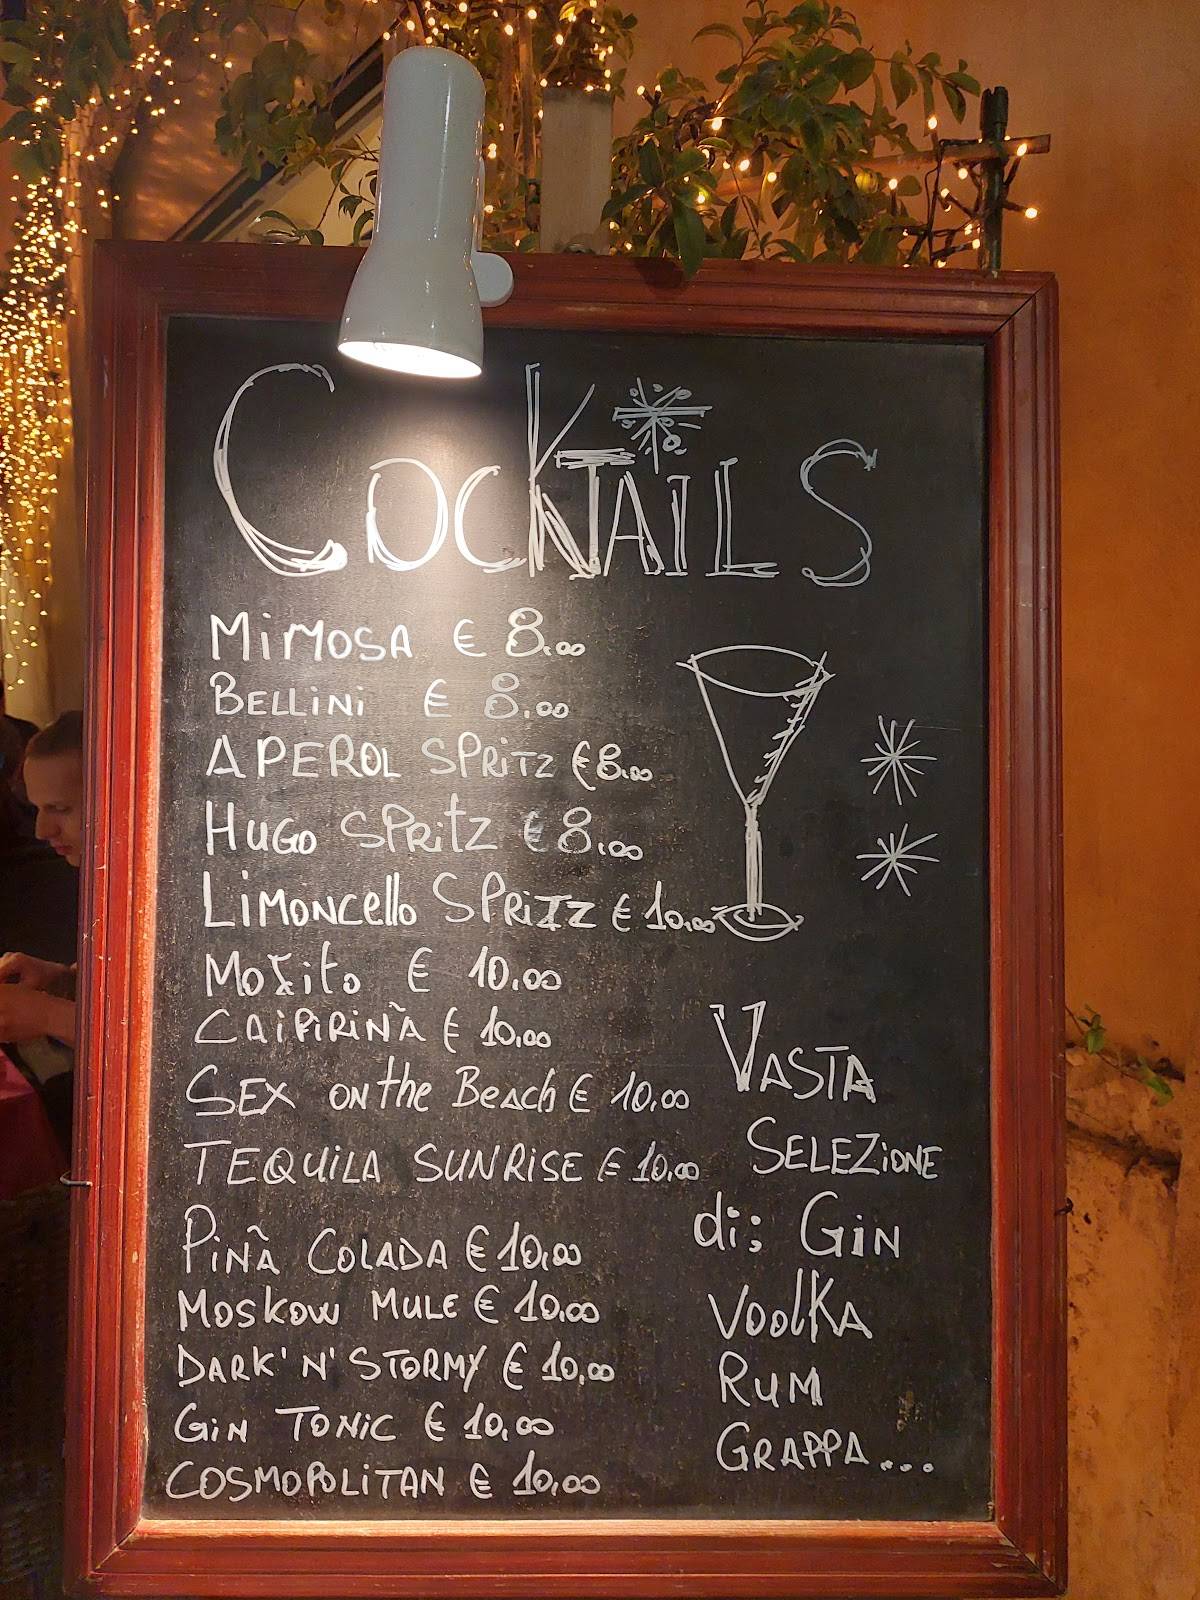 COCKTAILS
MiMOSA € 8.00
BELLiNi € 8.00
APEROL SPRiTZ € 8.00
HUGO SPRiTZ € 8.00
LiMONCello SPRiTZ € 10.00
MOJito € 10.00
CAiPiRiÑA € 10.00
SEX ON the BeACh € 10.00
TEQUiLA SUNRiSE € 10.00
PiÑA COLADA € 10.00
MOSKOW MULE € 10.00
DARK'N'STORMY € 10.00
GiN TONiC € 10.00
COSMOPOLiTAN € 10.00
VASTA
SELEZiONE
di: GiN
VodKA
RUM
GRAPPA...